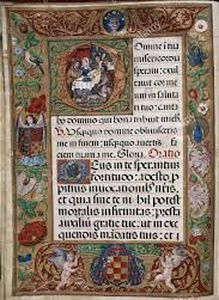 Domine i tua
misericordia
speraui: exul
tauit cor me
um in saluta
ri tuo: canta
bo domino qui bona tribuit mich
V. Usquequo domine obliuisceris
me in finem: usquequo auertis fa
ciem tuam a me. Gloria. Oratio
Deus in te sperantiu
fortitudo: adesto, pro
pitius inuocationibus nr̄is,
et quia sine te nihil potest
mortalis infirmitas: presta
auxiliu gratie tue: ut in ex
equendis madatis tuis: et i